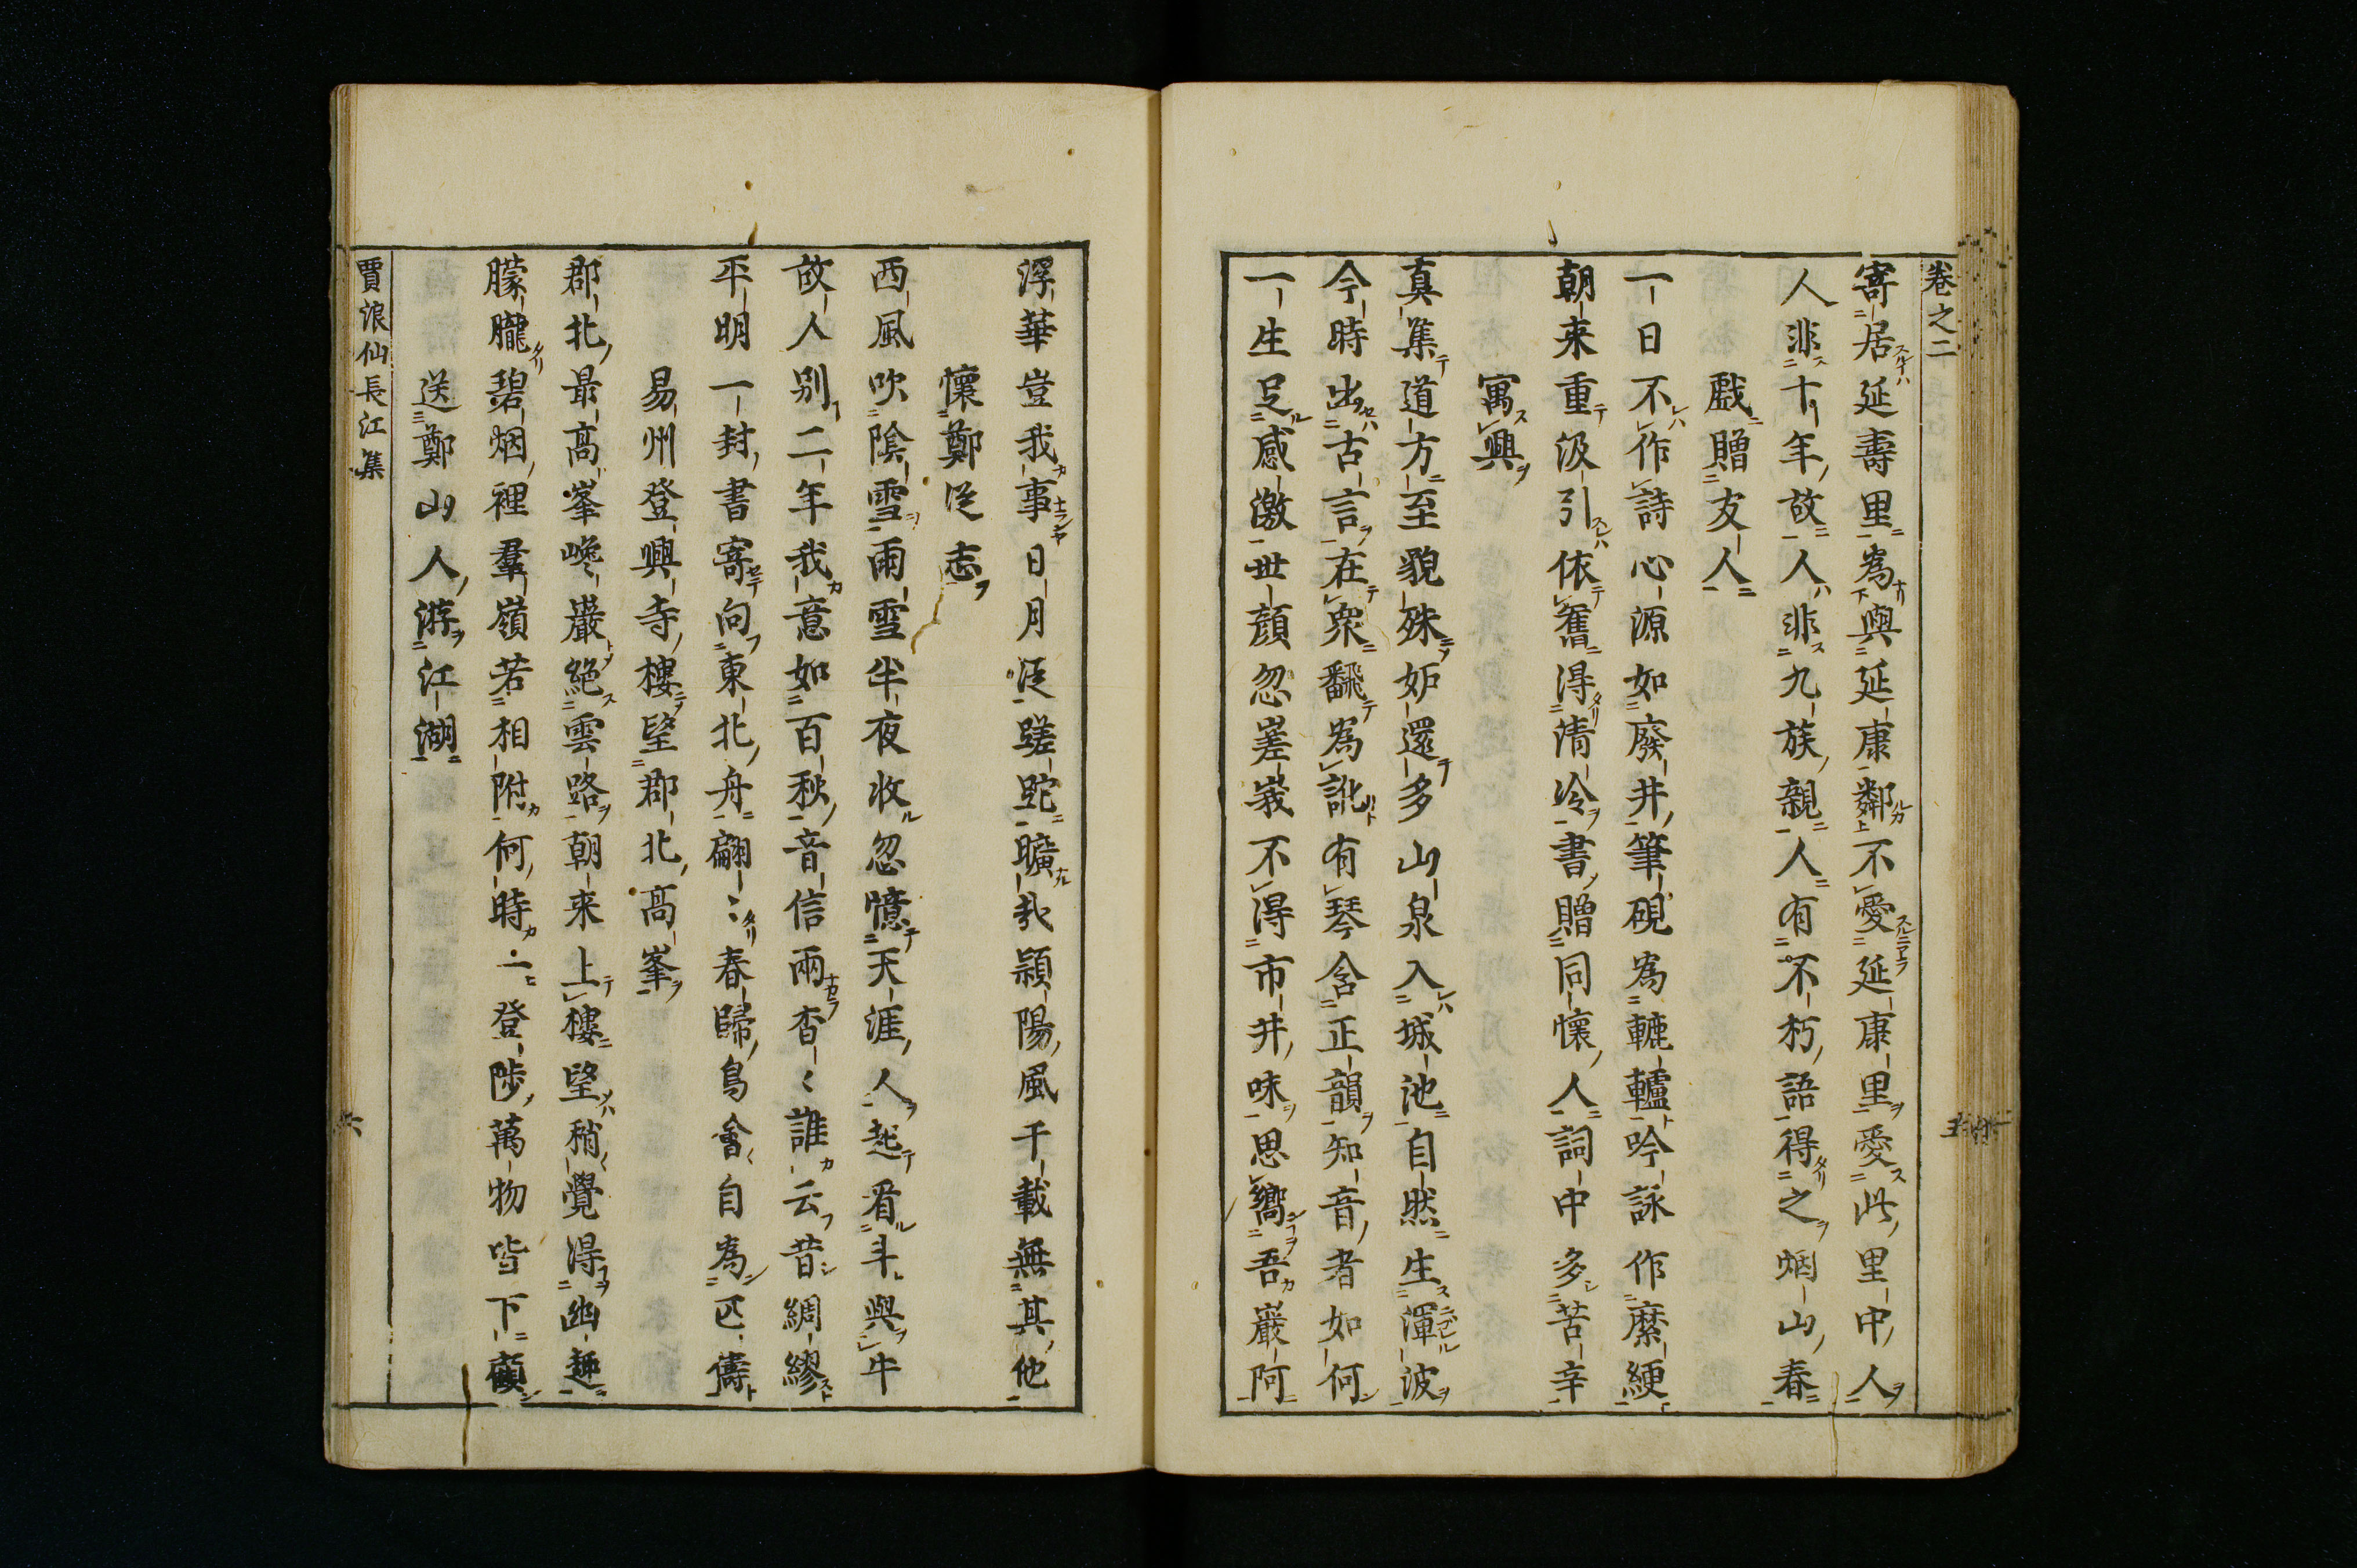 卷之二
寄居延壽里為與延康鄰不愛延康里愛此里中人
人非十年故人非九族親人有不朽語得之烟山春
戲贈友人
一日不作詩心源如廢井筆硯為轆轤吟詠作縻綆
朝来重汲引依舊得清冷書贈同懷人詞中多苦辛
寓興
真集道方至貌殊妒還多山泉入城池自然生渾波
今時出古言在衆翻為訛有琴含正韻知音者如何
一生足感激世顔忽嵳峩不得市井味思嚮吾巖阿
浮華豈我事日月徒蹉跎曠哉潁陽風千載無其他
懷鄭從志
西風吹陰雪雨雪半夜收忽憶天涯人起看斗與牛
故人別二年我意如百秋音信兩杳〻誰云昔綢繆
平明一封書寄向東北舟翩〻春歸鳥會自為匹儔
易州登興寺樓望郡北高峯
郡北最高峯巉巖絶雲路朝来上樓望稍覺得幽趣
朦朧碧烟裡羣嶺若相附何時一登陟萬物皆下顧
送鄭山人游江湖
賈浪仙長江集
六